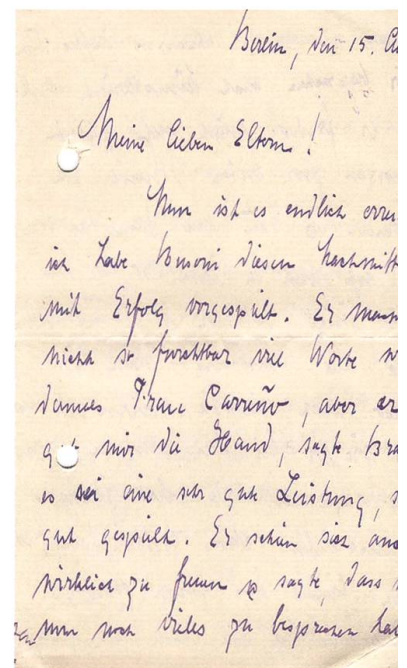 Berlin, den 15.
Meine lieben Eltern!
Nun ist es endlich errei
ich habe Busoni diesen Nachmitt
mit Erfolg vorgespielt. Er mach
nicht so furchtbar viel Worte w
damals Frau Carreño, aber er
gab mir die Hand, sagte Bra
es sei eine sehr gute Leistung, s
gut gespielt. Er schien sich
wirklich zu freuen u sagte, dass
nun noch vieles zu besprechen hä